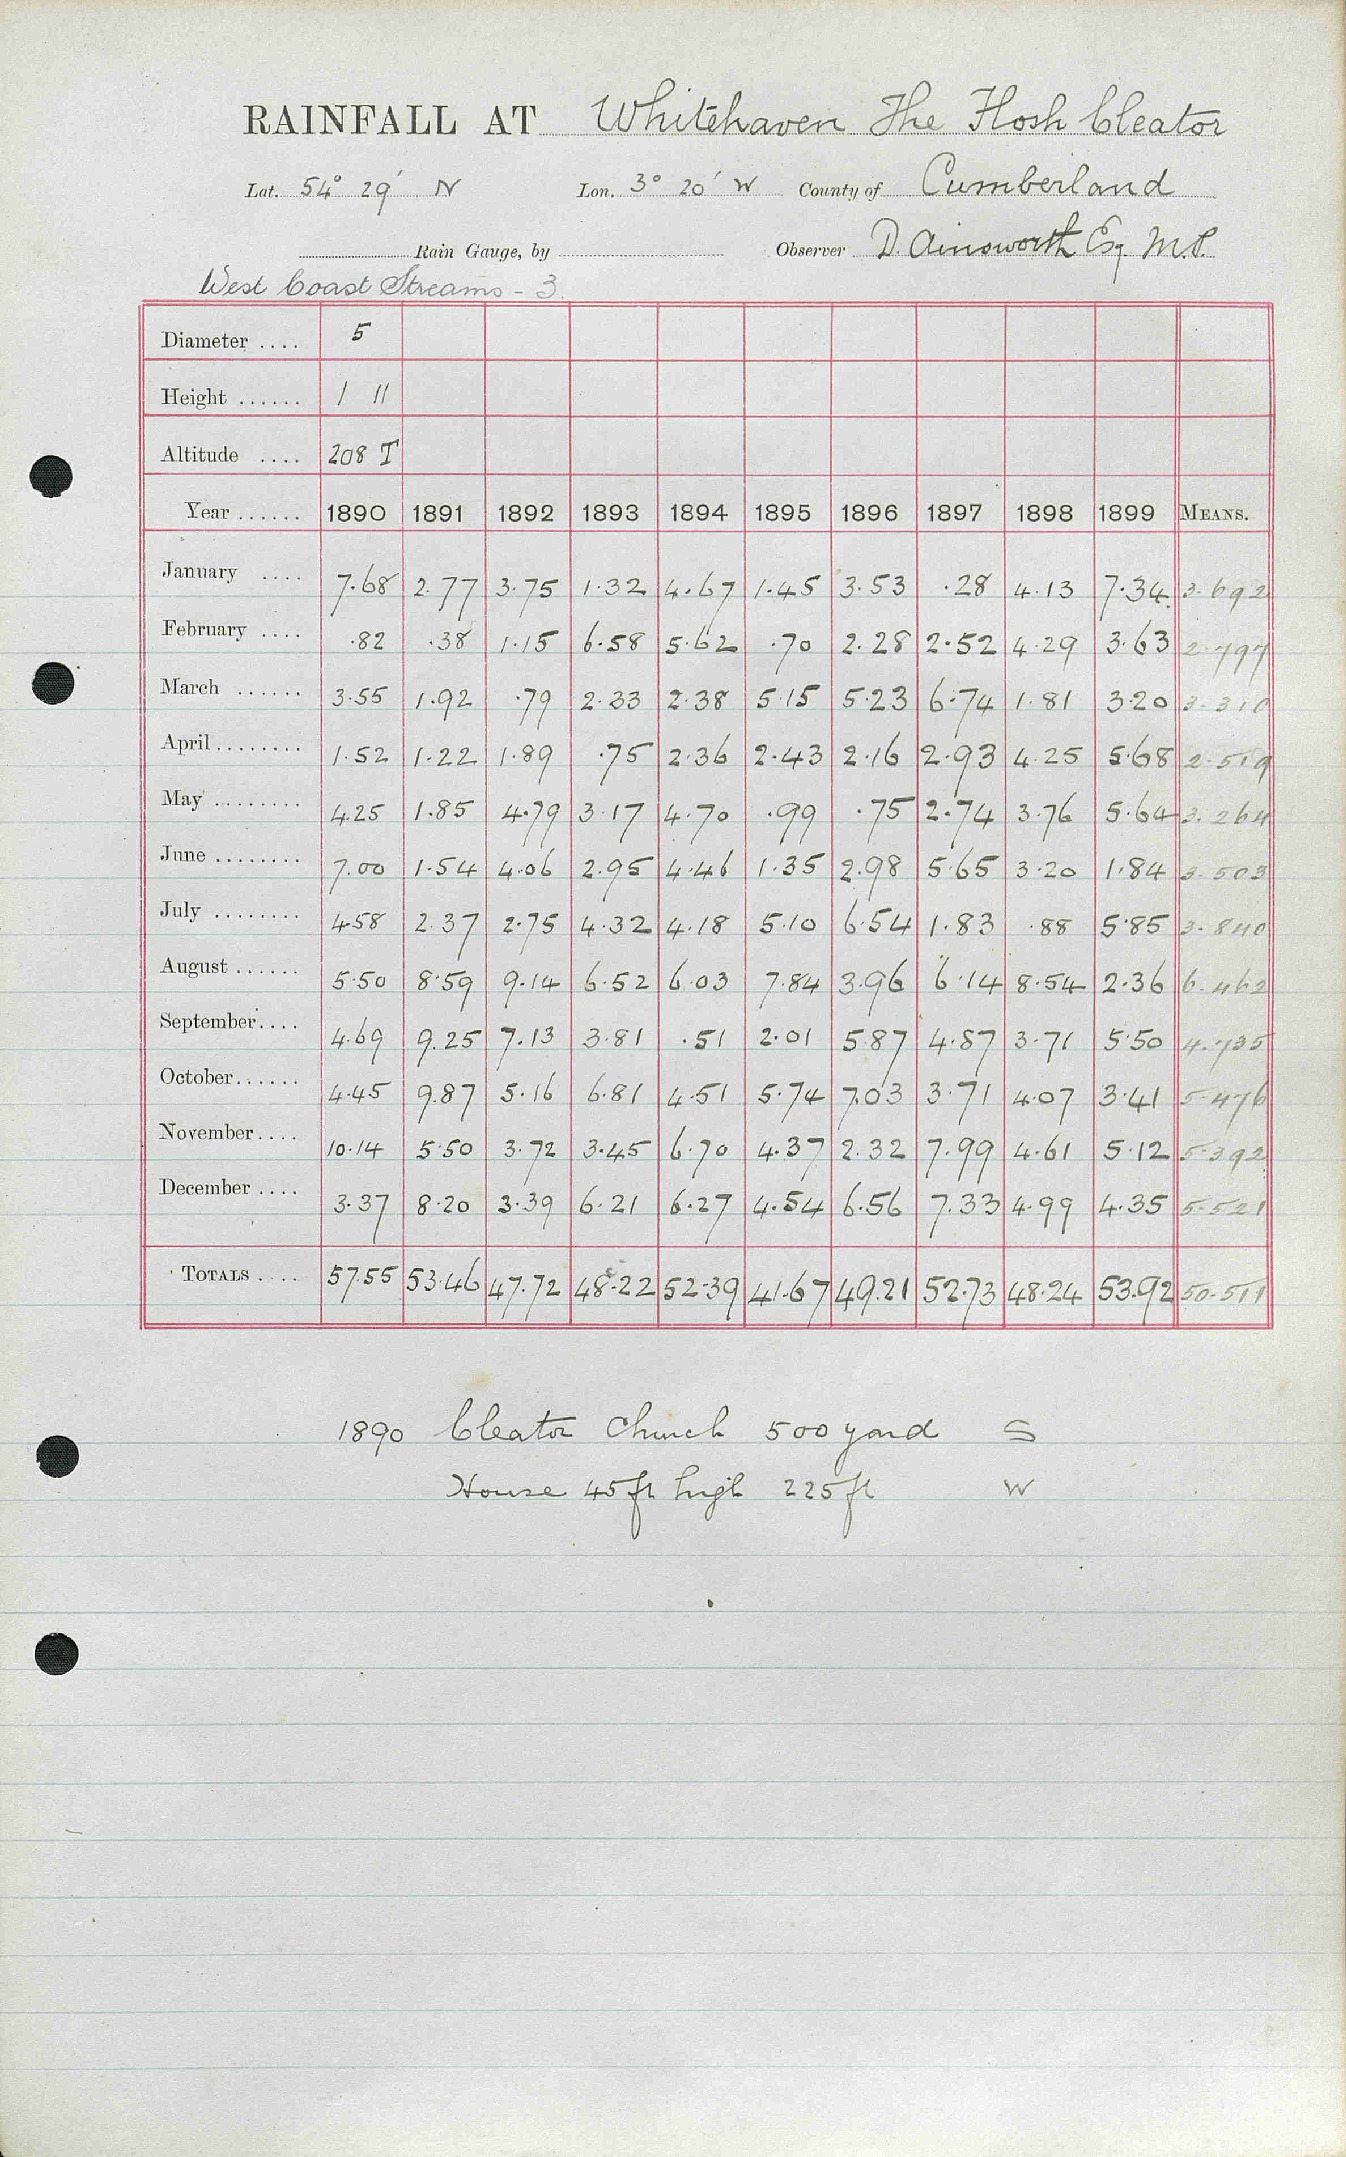 RAINFALL AT Whitehaven The Flosh Cleator
Lat. 54° 29' N Lon. 3° 20' W County of Cumberland
Rain Gauge, by Observer D. Ainsworth Esq M.P.
West Coast Streams - 3.
Diameter .... 5
Height ...... 1 11
Altitude .... 208 T
Year ...... 1890 1891 1892 1893 1894 1895 1896 1897 1898 1899 MEANS.
January .... 7.68 2.77 3.75 1.32 4.67 1.45 3.53 .28 4.13 7.34 3.692
February .... .82 .38 1.15 6.58 5.62 .70 2.28 2.52 4.29 3.63 2.797
March ...... 3.55 1.92 .79 2.33 2.38 5.15 5.23 6.74 1.81 3.20 3.310
April ........ 1.52 1.22 1.89 .75 2.36 2.43 2.16 2.93 4.25 5.68 2.519
May ........ 4.25 1.85 4.79 3.17 4.70 .99 .75 2.74 3.76 5.64 3.264
June ........ 7.00 1.54 4.06 2.95 4.46 1.35 2.98 5.65 3.20 1.84 3.503
July ........ 4.58 2.37 2.75 4.32 4.18 5.10 6.54 1.83 .88 5.85 3.840
August ...... 5.50 8.59 9.14 6.52 6.03 7.84 3.96 6.14 8.54 2.36 6.462
September .... 4.69 9.25 7.13 3.81 .51 2.01 5.87 4.87 3.71 5.50 4.735
October ...... 4.45 9.87 5.16 6.81 4.51 5.74 7.03 3.71 4.07 3.41 5.476
November .... 10.14 5.50 3.72 3.45 6.70 4.37 2.32 7.99 4.61 5.12 5.392
December .... 3.37 8.20 3.39 6.21 6.27 4.54 6.56 7.33 4.99 4.35 5.521
TOTALS .... 57.55 53.46 47.72 48.22 52.39 41.67 49.21 52.73 48.24 53.92 50.511
1890 Cleator Church 500 yard S
House 45 ft high 225 ft W